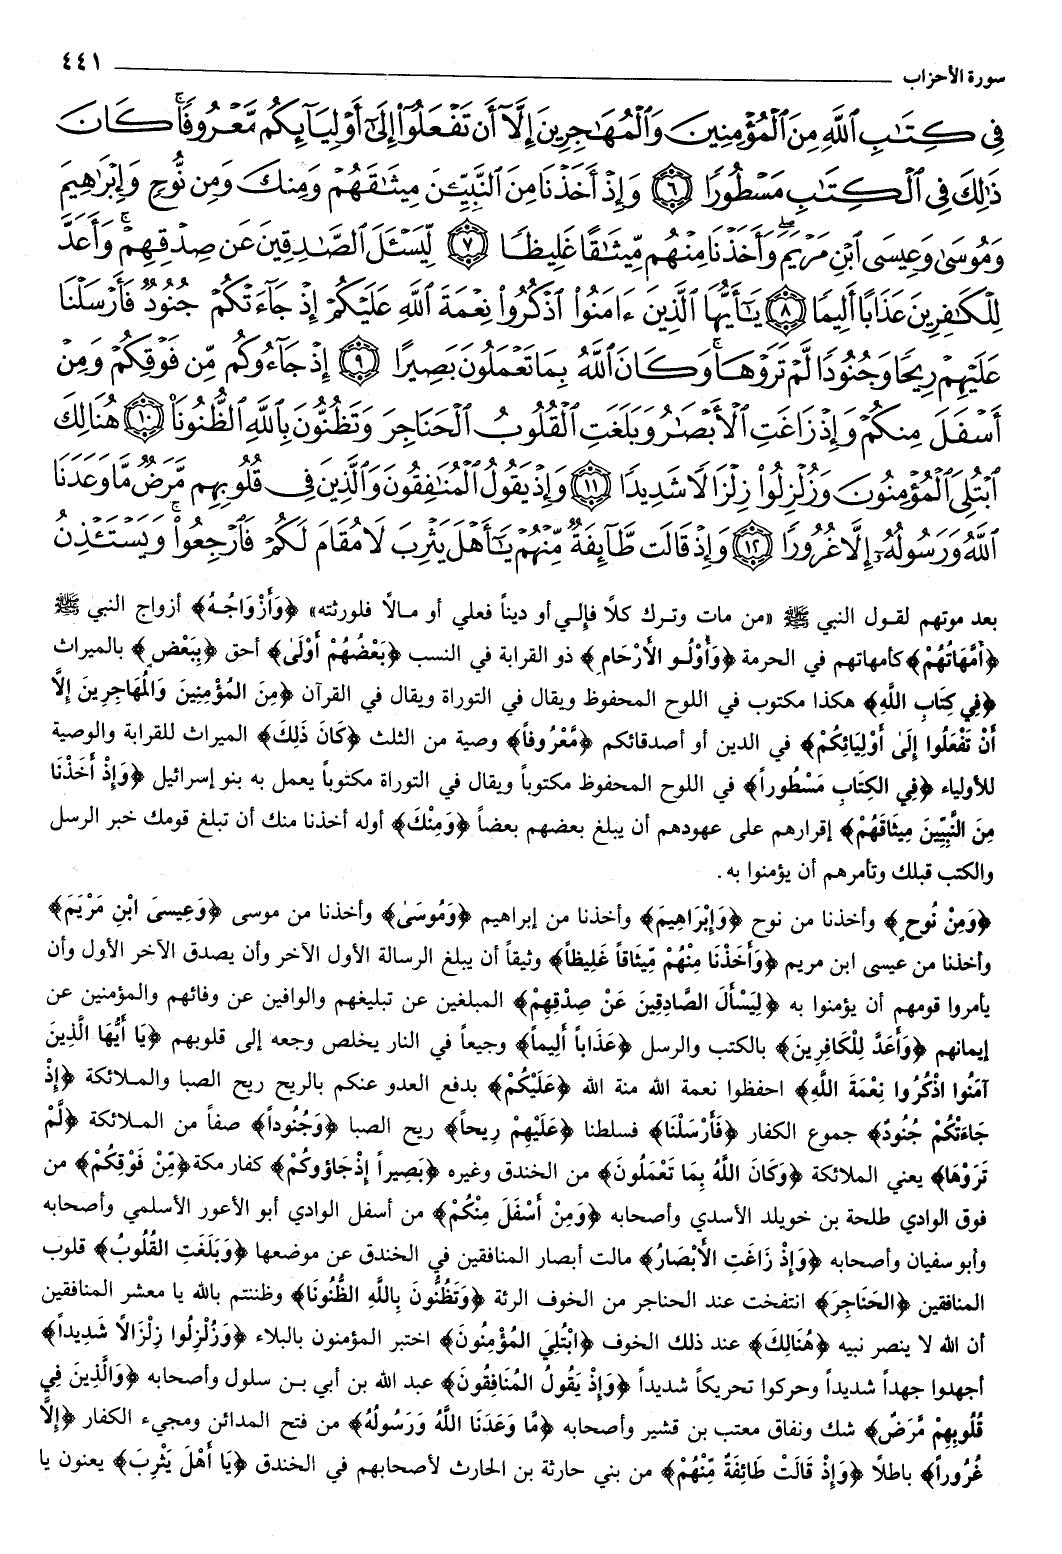 سورة الأحزاب ٤٤١
فِي كِتَٰبِ ٱللَّهِ مِنَ ٱلْمُؤْمِنِينَ وَٱلْمُهَٰجِرِينَ إِلَّآ أَن تَفْعَلُوٓا۟ إِلَىٰٓ أَوْلِيَآئِكُم مَّعْرُوفًا ۚ كَانَ
ذَٰلِكَ فِي ٱلْكِتَٰبِ مَسْطُورًا ٦ وَإِذْ أَخَذْنَا مِنَ ٱلنَّبِيِّـۧنَ مِيثَٰقَهُمْ وَمِنكَ وَمِن نُّوحٍ وَإِبْرَٰهِيمَ
وَمُوسَىٰ وَعِيسَى ٱبْنِ مَرْيَمَ ۖ وَأَخَذْنَا مِنْهُم مِّيثَٰقًا غَلِيظًا ٧ لِّيَسْـَٔلَ ٱلصَّٰدِقِينَ عَن صِدْقِهِمْ ۚ وَأَعَدَّ
لِلْكَٰفِرِينَ عَذَابًا أَلِيمًا ٨ يَٰٓأَيُّهَا ٱلَّذِينَ ءَامَنُوا۟ ٱذْكُرُوا۟ نِعْمَةَ ٱللَّهِ عَلَيْكُمْ إِذْ جَآءَتْكُمْ جُنُودٌ فَأَرْسَلْنَا
عَلَيْهِمْ رِيحًا وَجُنُودًا لَّمْ تَرَوْهَا ۚ وَكَانَ ٱللَّهُ بِمَا تَعْمَلُونَ بَصِيرًا ٩ إِذْ جَآءُوكُم مِّن فَوْقِكُمْ وَمِنْ
أَسْفَلَ مِنكُمْ وَإِذْ زَاغَتِ ٱلْأَبْصَٰرُ وَبَلَغَتِ ٱلْقُلُوبُ ٱلْحَنَاجِرَ وَتَظُنُّونَ بِٱللَّهِ ٱلظُّنُونَا۠ ١٠ هُنَالِكَ
ٱبْتُلِيَ ٱلْمُؤْمِنُونَ وَزُلْزِلُوا۟ زِلْزَالًا شَدِيدًا ١١ وَإِذْ يَقُولُ ٱلْمُنَٰفِقُونَ وَٱلَّذِينَ فِي قُلُوبِهِم مَّرَضٌ مَّا وَعَدَنَا
ٱللَّهُ وَرَسُولُهُۥٓ إِلَّا غُرُورًا ١٢ وَإِذْ قَالَت طَّآئِفَةٌ مِّنْهُمْ يَٰٓأَهْلَ يَثْرِبَ لَا مُقَامَ لَكُمْ فَٱرْجِعُوا۟ ۚ وَيَسْتَـْٔذِنُ
بعد موتهم لقول النبي ﷺ «من مات وترك كلاً فإلي أو ديناً فعلي أو مالاً فلورثته» ﴿وَأَزْوَاجُهُ﴾ أزواج النبي ﷺ
﴿أُمَّهَاتُهُمْ﴾ كأمهاتهم في الحرمة ﴿وَأُوْلُو الأَرْحَامِ﴾ ذو القرابة في النسب ﴿بَعْضُهُمْ أَوْلَىٰ﴾ أحق ﴿بِبَعْضٍ﴾ بالميراث
﴿فِي كِتَابِ اللَّهِ﴾ هكذا مكتوب في اللوح المحفوظ ويقال في التوراة ويقال في القرآن ﴿مِنَ المُؤْمِنِينَ وَالمُهَاجِرِينَ إِلَّا
أَنْ تَفْعَلُوا إِلَىٰ أَوْلِيَائِكُمْ﴾ في الدين أو أصدقائكم ﴿مَّعْرُوفاً﴾ وصية من الثلث ﴿كَانَ ذَلِكَ﴾ الميراث للقرابة والوصية
للأولياء ﴿فِي الكِتَابِ مَسْطُوراً﴾ في اللوح المحفوظ مكتوباً ويقال في التوراة مكتوباً يعمل به بنو إسرائيل ﴿وَإِذْ أَخَذْنَا
مِنَ النَّبِيِّينَ مِيثَاقَهُمْ﴾ إقرارهم على عهودهم أن يبلغ بعضهم بعضاً ﴿وَمِنْكَ﴾ أوله أخذنا منك أن تبلغ قومك خبر الرسل
والكتب قبلك وتأمرهم أن يؤمنوا به.
﴿وَمِنْ نُوحٍ﴾ وأخذنا من نوح ﴿وَإِبْرَاهِيمَ﴾ وأخذنا من إبراهيم ﴿وَمُوسَىٰ﴾ وأخذنا من موسى ﴿وَعِيسىَ ابْنِ مَرْيَمَ﴾
وأخذنا من عيسى ابن مريم ﴿وَأَخَذْنَا مِنْهُمْ مِّيثَاقاً غَلِيظاً﴾ وثيقاً أن يبلغ الرسالة الأول الآخر وأن يصدق الآخر الأول وأن
يأمروا قومهم أن يؤمنوا به ﴿لِيَسْأَلَ الصَّادِقِينَ عَنْ صِدْقِهِمْ﴾ المبلغين عن تبليغهم والوافين عن وفائهم والمؤمنين عن
إيمانهم ﴿وَأَعَدَّ لِلْكَافِرِينَ﴾ بالكتب والرسل ﴿عَذَاباً أَلِيماً﴾ وجيعاً في النار يخلص وجعه إلى قلوبهم ﴿يَا أَيُّهَا الَّذِينَ
آمَنُوا اذْكُرُوا نِعْمَةَ اللَّهِ﴾ احفظوا نعمة الله منة الله ﴿عَلَيْكُمْ﴾ بدفع العدو عنكم بالريح ريح الصبا والملائكة ﴿إِذْ
جَاءَتْكُمْ جُنُودٌ﴾ جموع الكفار ﴿فَأَرْسَلْنَا﴾ فسلطنا ﴿عَلَيْهِمْ رِيحاً﴾ ريح الصبا ﴿وَجُنُوداً﴾ صفاً من الملائكة ﴿لَّمْ
تَرَوْهَا﴾ يعني الملائكة ﴿وَكَانَ اللَّهُ بِمَا تَعْمَلُونَ﴾ من الخندق وغيره ﴿بَصِيراً إِذْجَاؤوكُمْ﴾ كفار مكة ﴿مِّنْ فَوْقِكُمْ﴾ من
فوق الوادي طلحة بن خويلد الأسدي وأصحابه ﴿وَمِنْ أَسْفَلَ مِنْكُمْ﴾ من أسفل الوادي أبو الأعور الأسلمي وأصحابه
وأبو سفيان وأصحابه ﴿وَإِذْ زَاغَتِ الأَبْصَارُ﴾ مالت أبصار المنافقين في الخندق عن موضعها ﴿وَبَلَغَتِ القُلُوبُ﴾ قلوب
المنافقين ﴿الحَنَاجِرَ﴾ انتفخت عند الحناجر من الخوف الرئة ﴿وَتَظُنُّونَ بِاللَّهِ الظُّنُونَا﴾ وظننتم بالله يا معشر المنافقين
أن الله لا ينصر نبيه ﴿هُنَالِكَ﴾ عند ذلك الخوف ﴿ابْتُلِيَ المُؤْمِنُونَ﴾ اختبر المؤمنون بالبلاء ﴿وَزُلْزِلُوا زِلْزَالاً شَدِيداً﴾
أجهدوا جهداً شديداً وحركوا تحريكاً شديداً ﴿وَإِذْ يَقُولُ المُنَافِقُونَ﴾ عبد الله بن أبي بن سلول وأصحابه ﴿وَالَّذِينَ فِي
قُلُوبِهِمْ مَّرَضٌ﴾ شك ونفاق معتب بن قشير وأصحابه ﴿مَّا وَعَدَنَا اللَّهُ وَرَسُولُهُ﴾ من فتح المدائن ومجيء الكفار ﴿إِلَّا
غُرُوراً﴾ باطلاً ﴿وَإِذْ قَالَتْ طَائِفَةٌ مِّنْهُمْ﴾ من بني حارثة بن الحارث لأصحابهم في الخندق ﴿يَا أَهْلَ يَثْرِبَ﴾ يعنون يا